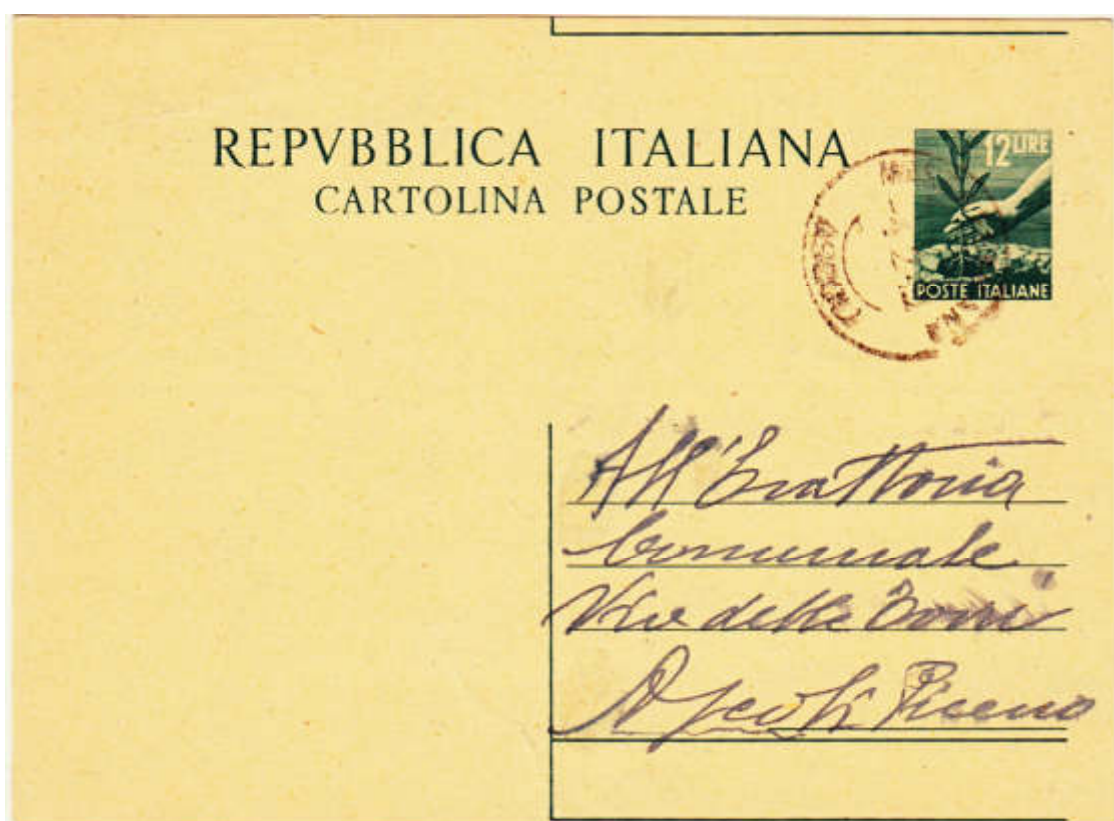 REPVBBLICA ITALIANA
CARTOLINA POSTALE
12 LIRE
POSTE ITALIANE
All'Esattoria
Comunale
Via delle Torri
Ascoli Piceno